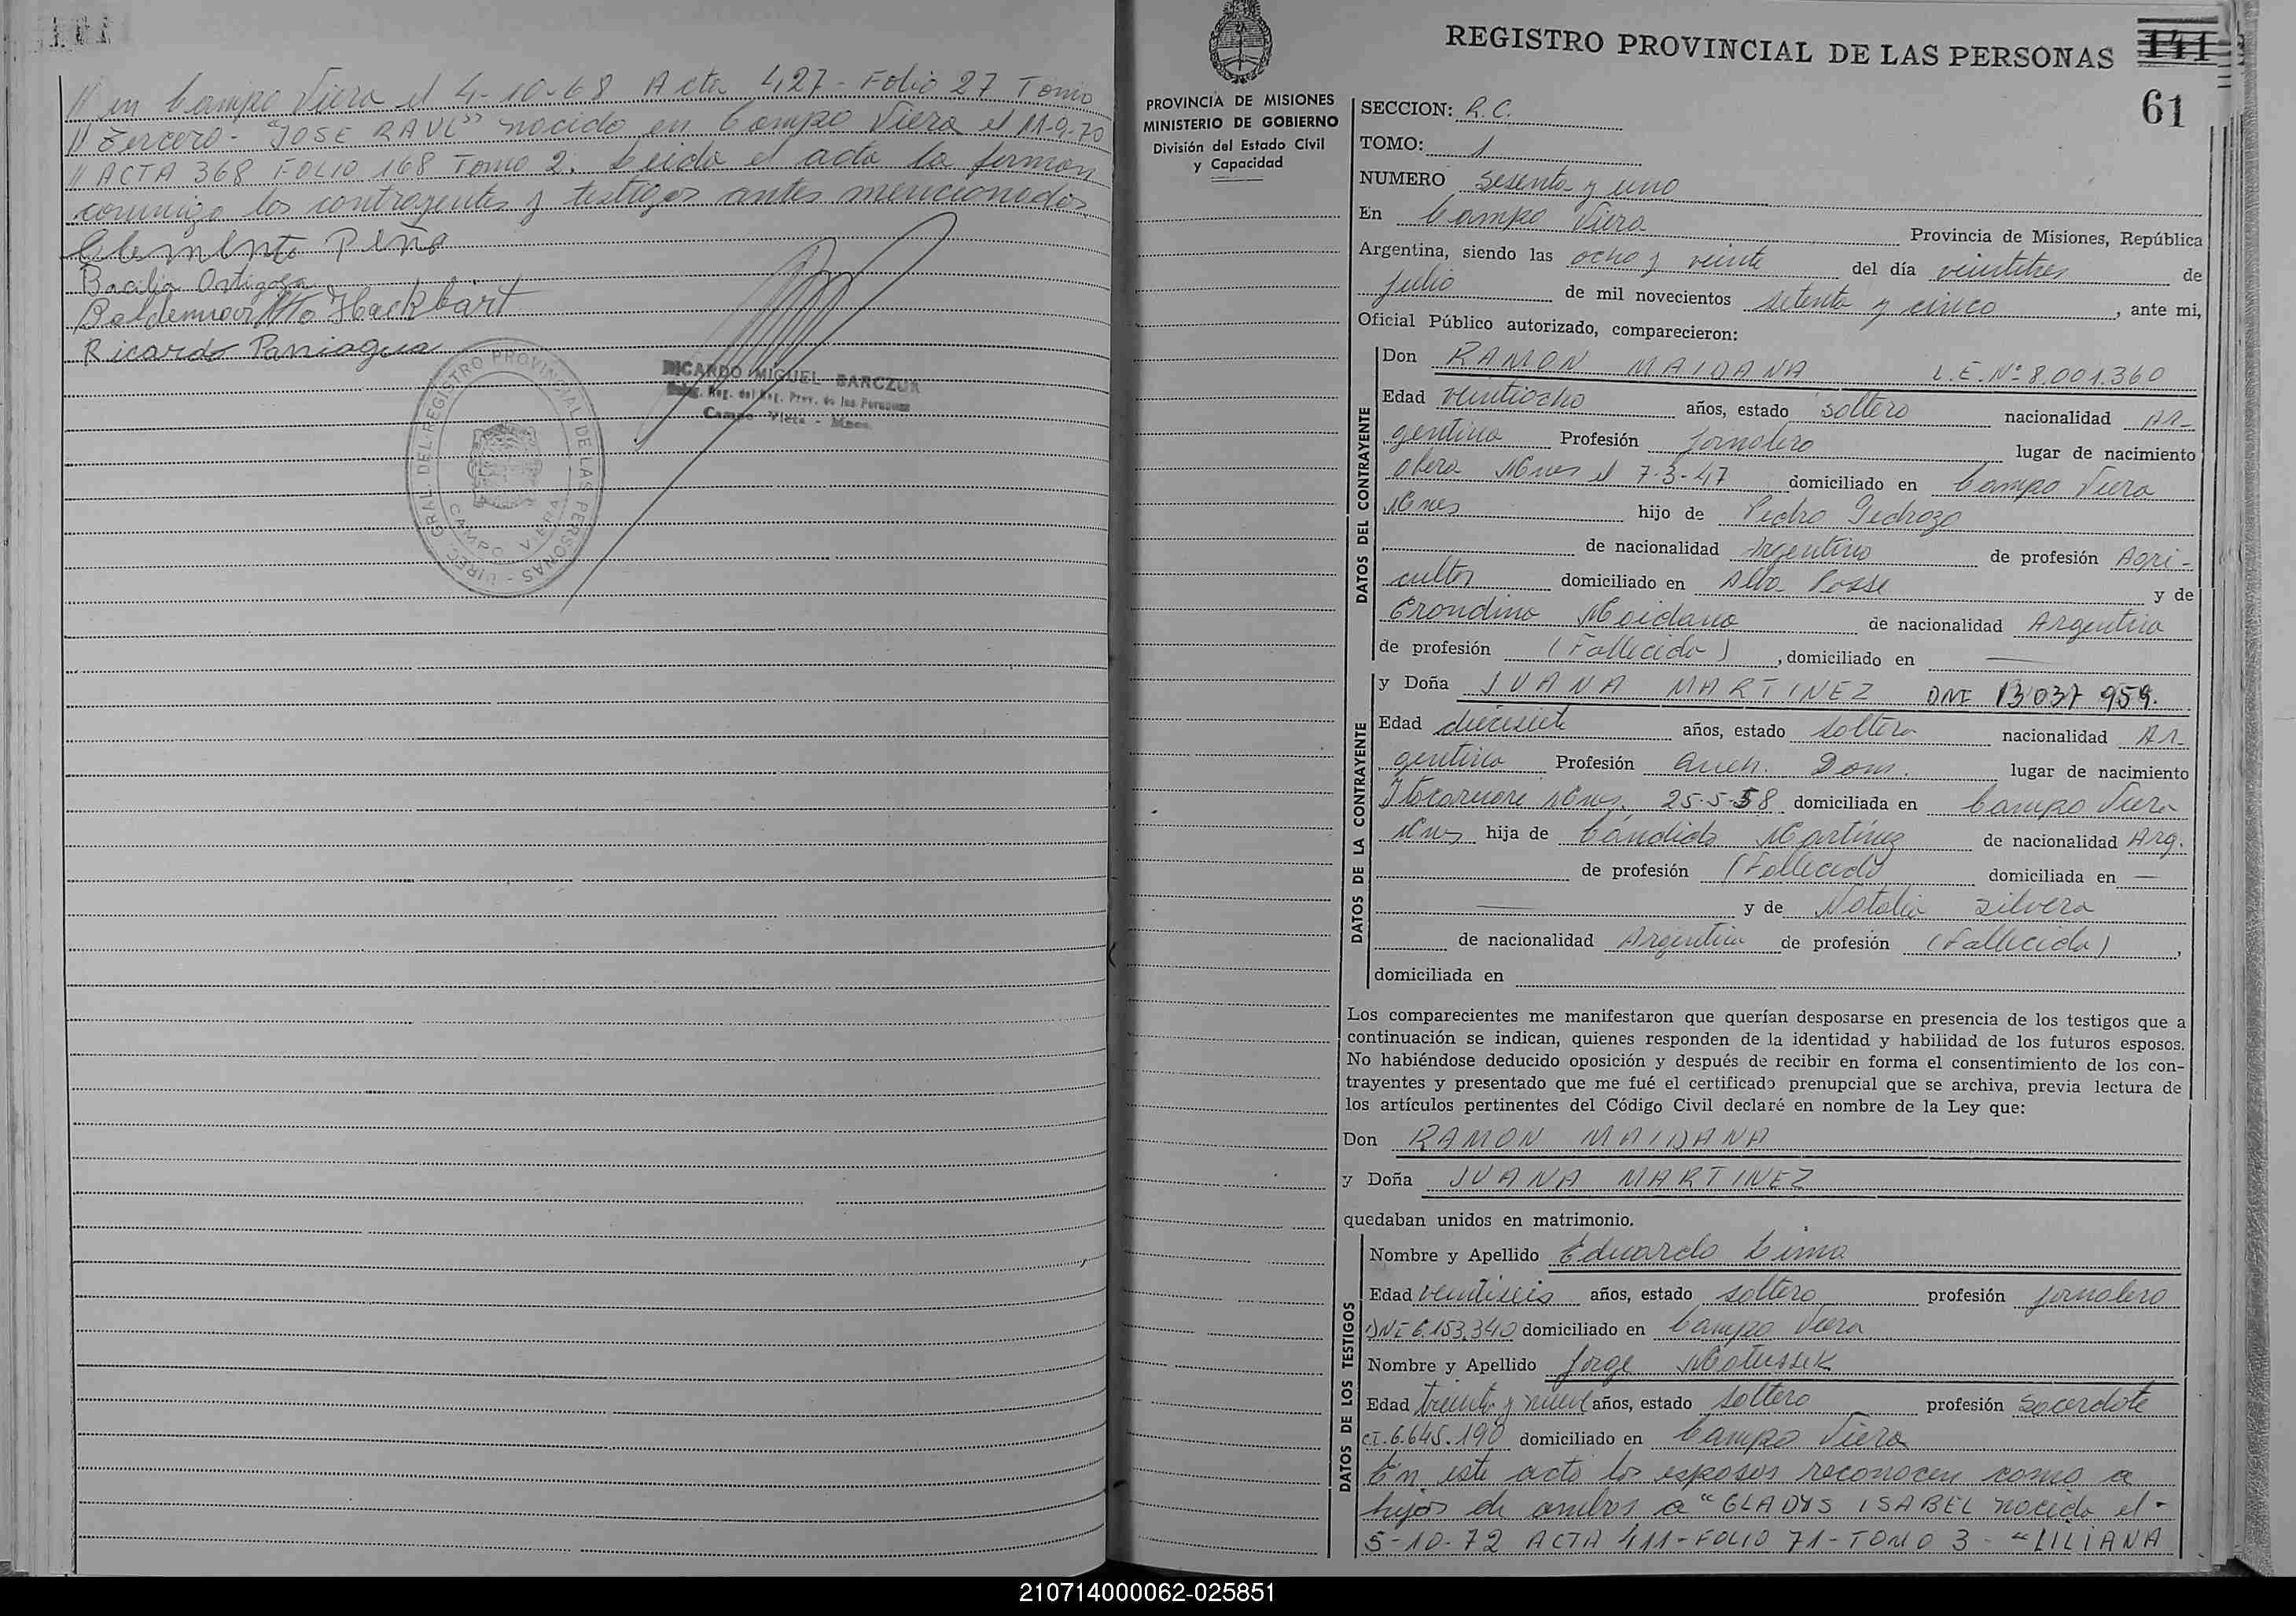 // en Campo Viera el 4-10-68 Acta 427 - Folio 27 Tomo
// Tercero - "JOSE RAUL" nacido en Campo Viera el 11-9-70
// ACTA 368 FOLIO 168 Tomo 2. Leida el acta la firman
conmigo los contrayentes y testigos antes mencionados
Clemente Peña
Bacilia Ortigoza
Baldemar Otto Hackbart
Ricardo Paniagua
DIREC. GRAL. DEL REGISTRO PROVINCIAL DE LAS PERSONAS -
CAMPO VIERA
RICARDO MIGUEL BARCZUK
Reg. del Reg. Prov. de las Personas
Campo Viera - Mnes.
REGISTRO PROVINCIAL DE LAS PERSONAS
141
61
PROVINCIA DE MISIONES
MINISTERIO DE GOBIERNO
División del Estado Civil
y Capacidad
SECCION: R.C.
TOMO: 1
NUMERO sesenta y uno
En Campo Viera Provincia de Misiones, República
Argentina, siendo las ocho y veinte del día veintitres de
Julio de mil novecientos setenta y cinco, ante mi,
Oficial Público autorizado, comparecieron:
DATOS DEL CONTRAYENTE
Don RAMON MAIDANA L.E. Nº 8.001.360
Edad veintiocho años, estado soltero nacionalidad Ar-
gentina Profesión Jornalero lugar de nacimiento
Obera Mnes el 7-3-47 domiciliado en Campo Viera
Mnes hijo de Pedro Pedrozo
de nacionalidad Argentino de profesión Agri-
cultor domiciliado en Alba Posse y de
Erondina Maidana de nacionalidad Argentina
de profesión (Fallecida), domiciliado en —
DATOS DE LA CONTRAYENTE
y Doña JUANA MARTINEZ DNI 13 037 959.
Edad diecisiete años, estado soltera nacionalidad Ar-
gentina Profesión Queh. Dom. lugar de nacimiento
Itacaruare Mnes. 25-5-58 domiciliada en Campo Viera
Mnes hija de Cándido Martínez de nacionalidad Arg.
de profesión (Fallecido domiciliada en —
— y de Natalia Silvera
de nacionalidad Argentina de profesión (Fallecida),
domiciliada en
Los comparecientes me manifestaron que querían desposarse en presencia de los testigos que a
continuación se indican, quienes responden de la identidad y habilidad de los futuros esposos.
No habiéndose deducido oposición y después de recibir en forma el consentimiento de los con-
trayentes y presentado que me fué el certificado prenupcial que se archiva, previa lectura de
los artículos pertinentes del Código Civil declaré en nombre de la Ley que:
Don RAMON MAIDANA
y Doña JUANA MARTINEZ
quedaban unidos en matrimonio.
DATOS DE LOS TESTIGOS
Nombre y Apellido Eduardo Lima
Edad veintiseis años, estado soltero profesión jornalero
DNI 6.153.340 domiciliado en Campo Viera
Nombre y Apellido Jorge Matussek
Edad treinta y nueve años, estado soltero profesión Sacerdote
CI. 6.645.190 domiciliado en Campo Viera
En este acto los esposos reconocen como a
hijos de ambos a "GLADYS ISABEL nacida el -
5-10-72 ACTA 411 - FOLIO 71 - TOMO 3 - "LILIANA
210714000062-025851